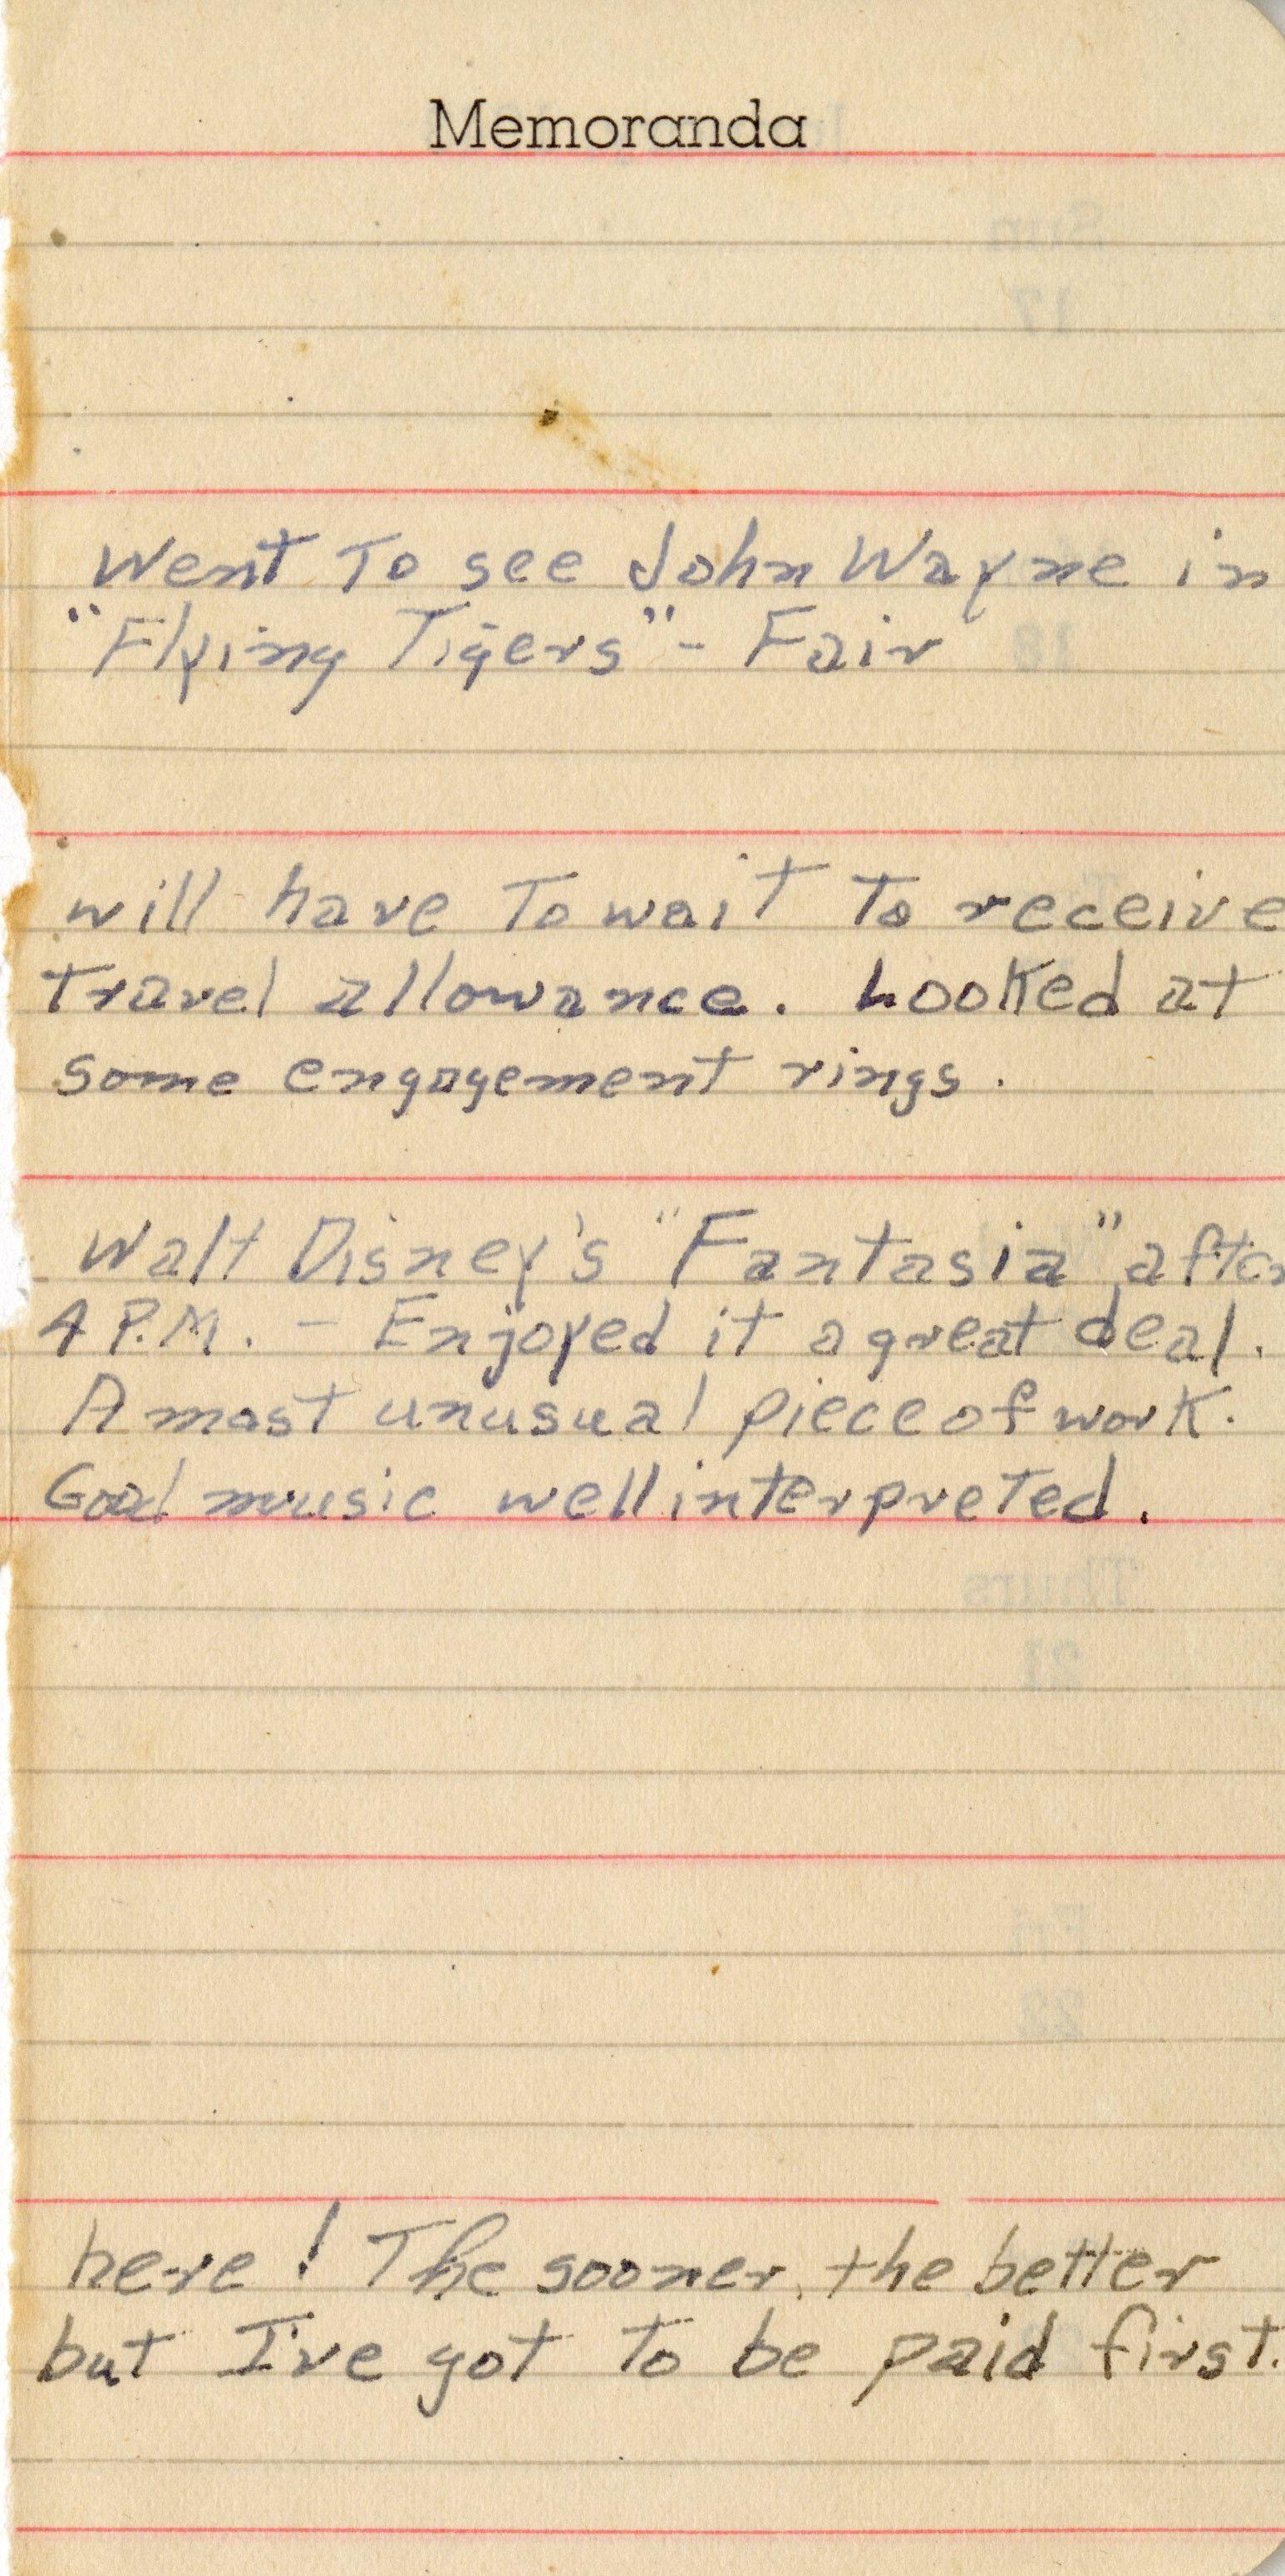 Memoranda
Went To see John Wayne in
"Flying Tigers" - Fair
will have To wait To receive
Travel allowance. Looked at
some engagement rings.
Walt Disney's "Fantasia" after
4 P.M. - Enjoyed it a great deal.
A most unusual piece of work.
Good music well interpreted.
here! The sooner, the better
but I've got to be paid first.